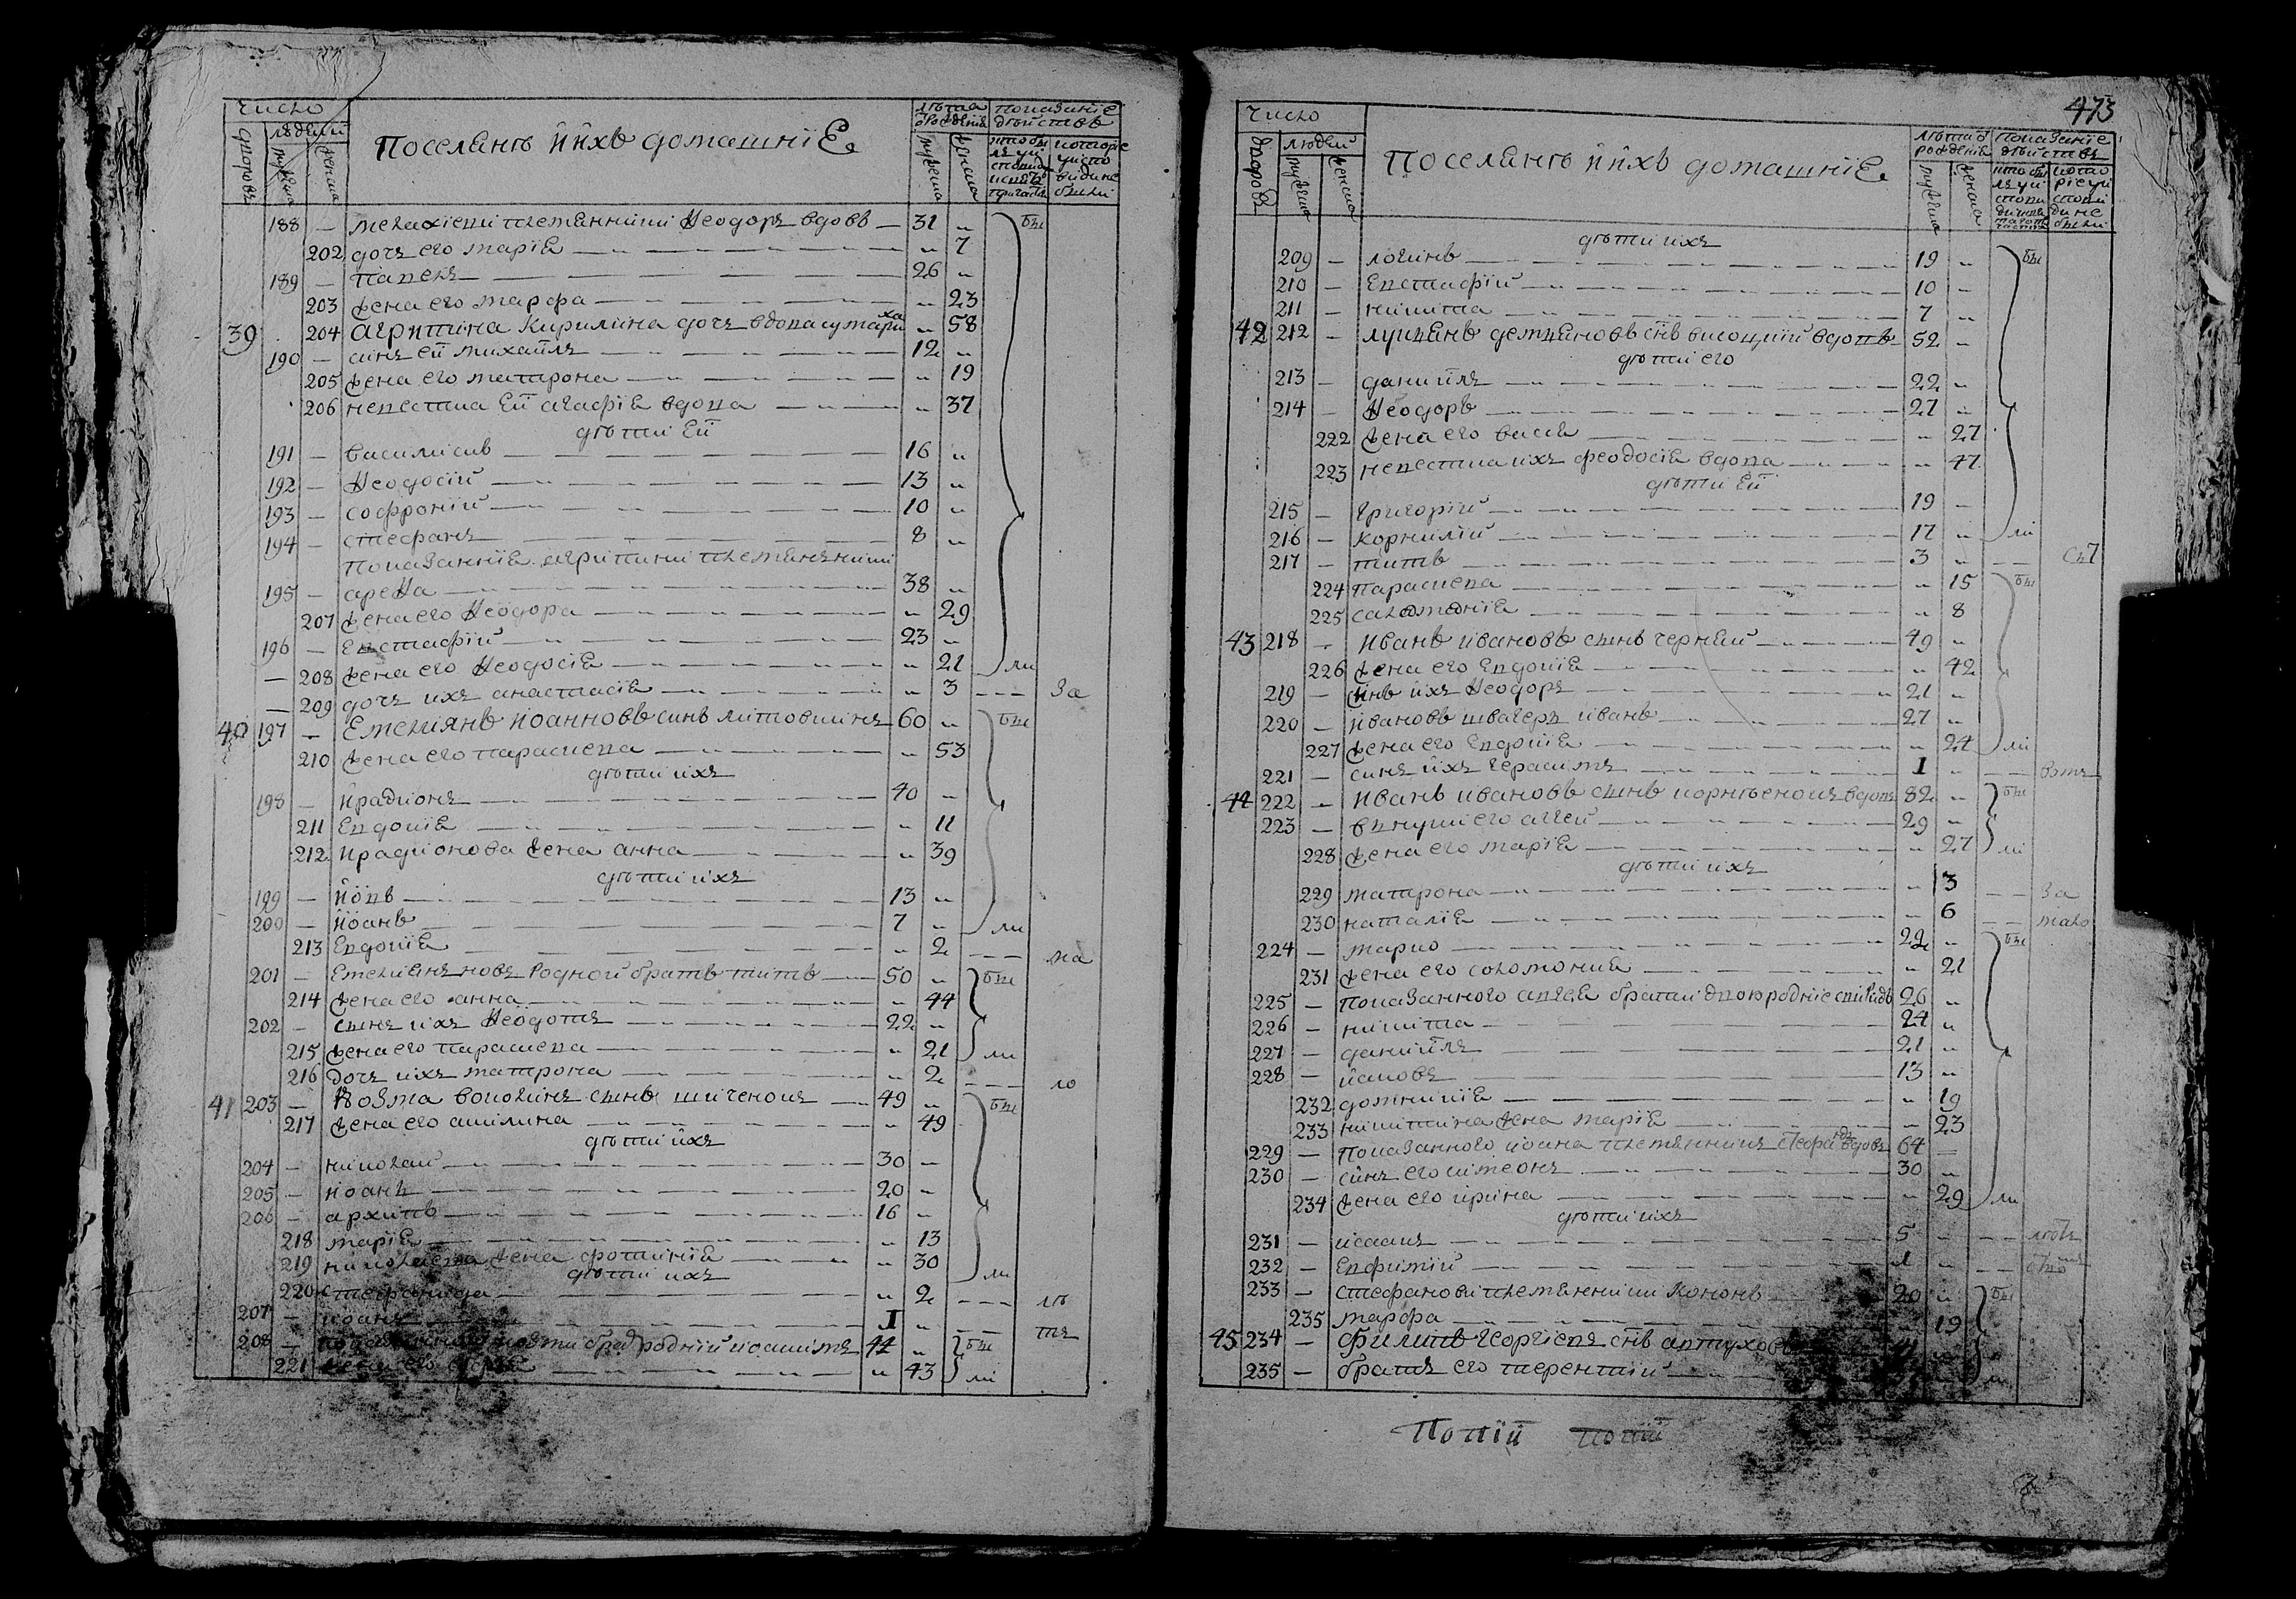 Число
дворовъ людей
мужеска женска
Поселянъ ййхъ домашніе
лѣта ѿ рожденія
мужеска женска
показаніе дѣйствъ
кто бы
ли у
исповѣди
и стаго
причастія
которіе
у испо
види не
были
188 — мелахіеви племянники Ѳеодоръ вдовъ — 31 „ бы
202 дочъ его маріа „ 7
189 — павелъ 26 „
203 жена его марфа „ 23
39 204 агрипина Кирилина дочъ вдова сумариха „ 58
190 — синъ ей михайлъ 12 „
205 жена его матрона „ 19
206 невестка ей агафіа вдова „ 37
дѣти ей
191 — василисив 16 „
192 — Ѳеодосій 13 „
193 — софроній 10 „
194 — стефанъ 8 „
показанніа агрипини племяненики
195 — ареѲа 38 „
207 жена его Ѳеодора „ 29
196 — евстафій 23 „
208 жена его Ѳеодосіа „ 21 ли
— 209 дочъ ихъ анастасіа „ 3 за
40 197 — Емелиянъ иоанновъ синъ литовкинъ 60 „ бы
210 жена его параскева „ 53
дѣти ихъ
198 — ирадионъ 40 „
211 Евдокиа „ 11
212 ирадионова жена анна „ 39
дѣти ихъ
199 — йовъ 13 „
200 — йоанъ 7 „ ли
213 Евдокиа „ 2 ма
201 — Емелиановъ Родной братъ титъ 50 „ бы
214 жена его анна „ 44
202 — сынъ ихъ Ѳеодотъ 22 „
215 жена его параскева „ 21 ли
216 дочъ ихъ матрона „ 2 ло
41 203 — Козма воколинъ сынъ шиченокъ 49 „ бы
217 жена его акилина „ 49
дѣти ихъ
204 — николай 30 „
205 — иоанъ 20 „
206 — архипъ 16 „
218 маріа „ 13
219 николаева жена фотинiа „ 30 ли
дѣти ихъ
220 стефанида „ 2 лѣ
207 — иоанъ 1 „ тъ
208 — показанного козми брат родній иоакимъ 44 „ бы
221 жена его „ 43 ли
473
Число
дворовъ людей
мужеска женска
Поселянъ ййхъ домашніе
лѣта ѿ рожденія
мужеска женска
показаніе дѣйствъ
дѣти ихъ
209 — логинъ 19 „ бы
210 — Евстафій 10 „
211 — никита 7 „
42 212 — лукъянъ демъяновъ снъ високий вдовъ 52 „
дѣти его
213 — данийлъ 22 „
214 — Ѳеодоръ 27 „
222 жена его васса „ 27
223 невестка ихъ феодосіа вдова „ 47
дѣти ей
215 — григорій 19 „
216 — корнилій 17 „ ли
217 — титъ 3 „
224 параскева „ 15 бы
225 саломоніа „ 8
43 218 — Иванъ ивановъ сынъ черней 49 „
226 жена его Евдокиа „ 42
219 — снъ ихъ Ѳеодоръ 21 „
220 — ивановъ швагеръ иванъ 27 „
227 жена его Евдокиа „ 24 ли
221 — синъ ихъ герасимъ 1 „
44 222 — Иванъ ивановъ сынъ корнѣенокъ вдовъ 82 „ бы
223 — внуки его аггей 29 „
228 жена его маріа „ 27 ли
дѣти ихъ
229 матрона „ 3 за
230 наталіа „ 6 мало
224 — марко 22 „ бы
231 жена его соломония „ 21
225 — показанного аггея братаи двоюродніе спиридъ 26 „
226 — никита 24 „
227 — данийлъ 21 „
228 — иаковъ 13 „
232 домникиа „ 19
233 никитина жена маріа „ 23
229 — показанного иоана племянникъ вдовъ 64 —
230 — синъ его симеонъ 30 „
234 жена его ирина „ 29 ли
дѣти ихъ
231 — исаакъ 5 „
232 — Евфимій 1 „
233 — стефанови племянники Кононъ 20 „ бы
235 марфа 19
45 234 — Филипъ георгіевъ снъ автуховъ
235 — братъ его терентий